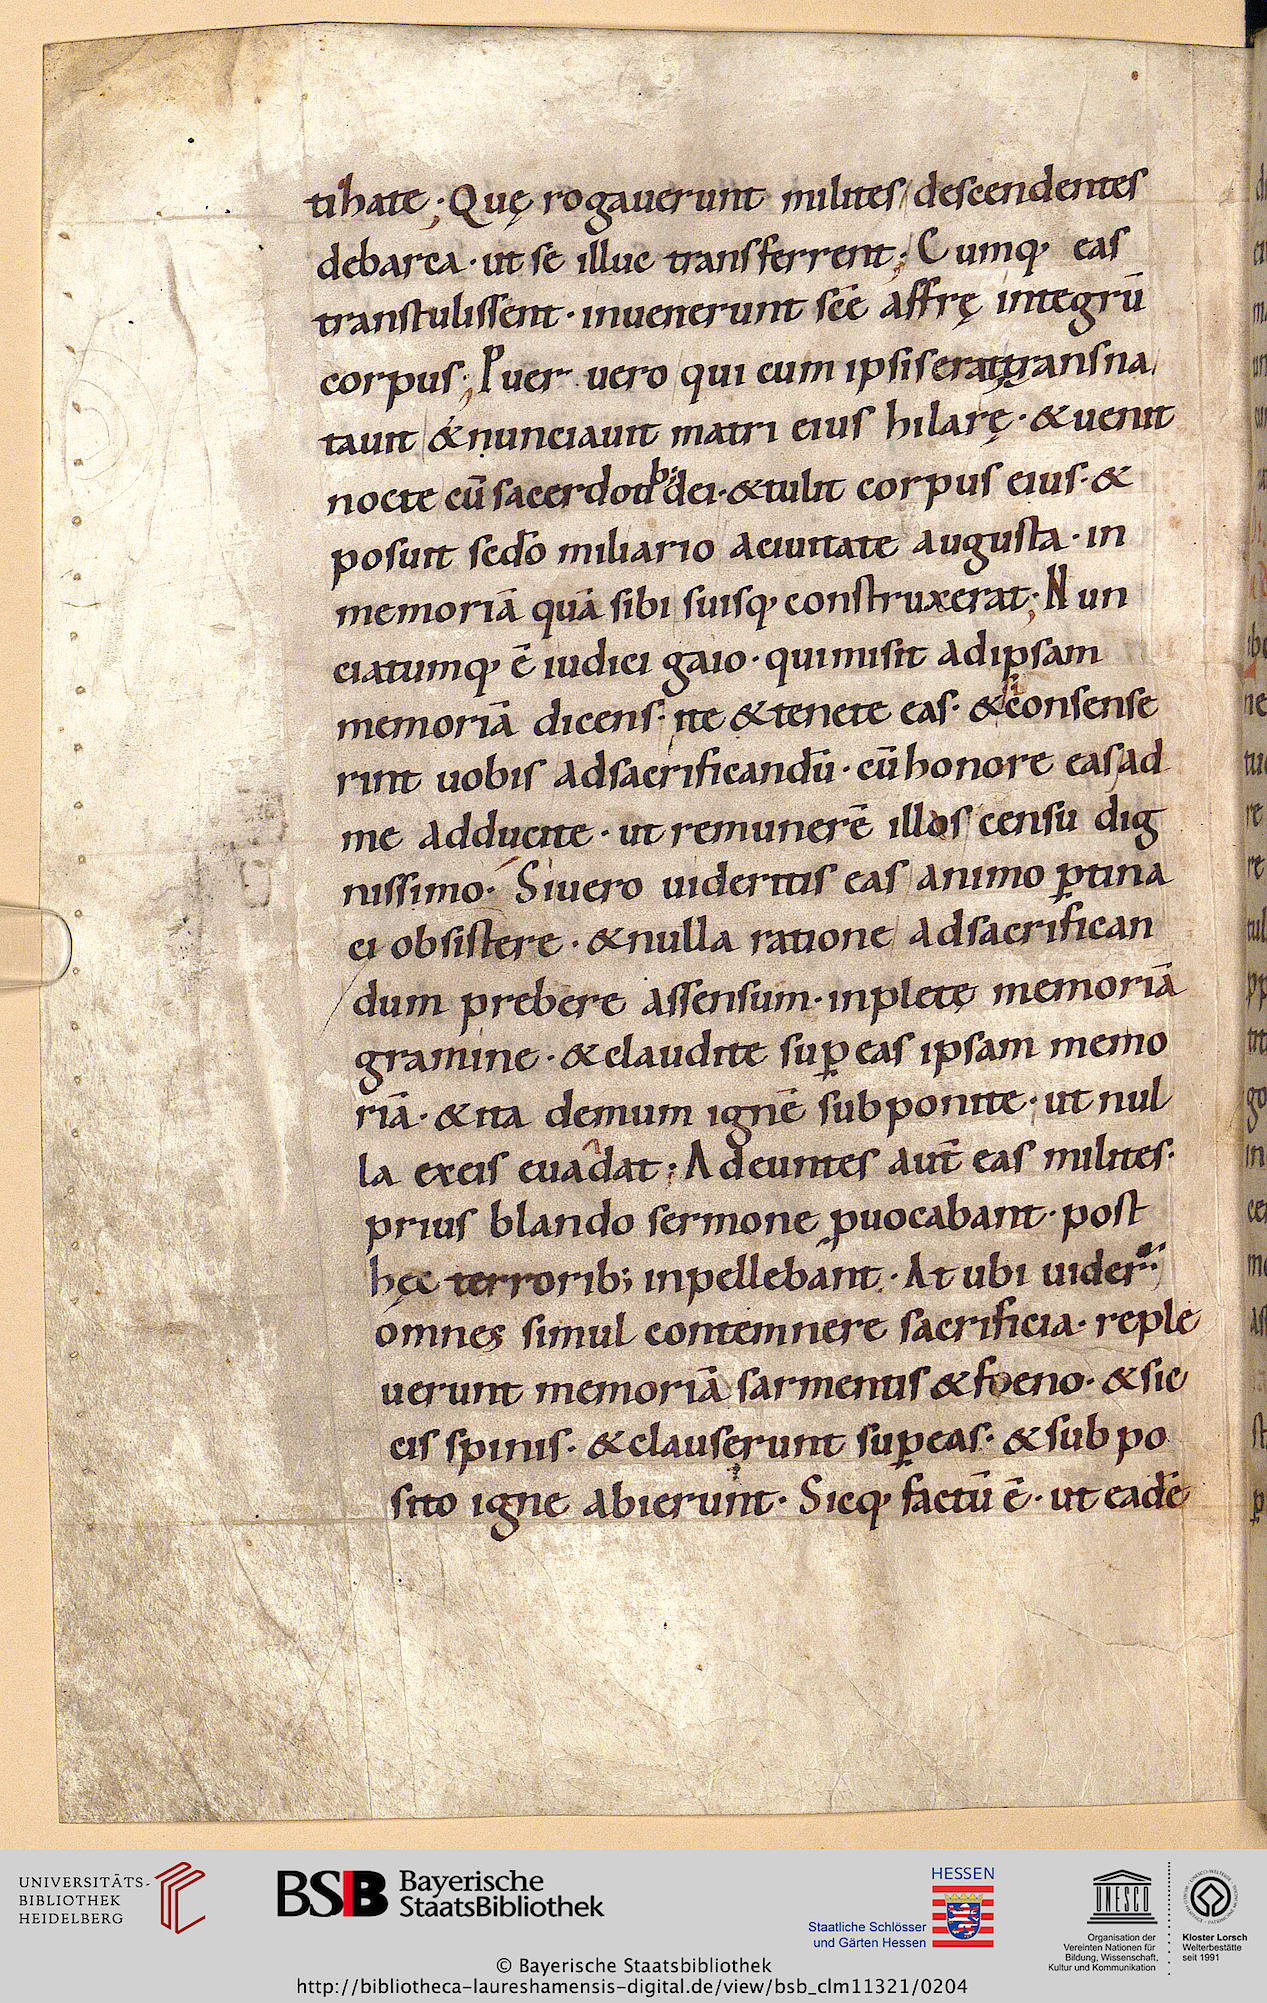 tihate; Quę rogauerunt milites descendentes
debarca · ut se illuc transferrent; Cumq; eas
transtulissent · inuenerunt sc̄e affrę integrū
corpus; Puer uero qui cum ipsis erat transna
tauit & nunciauit matri eius hilarę · & uenit
nocte cū sacerdotib; dei · & tulit corpus eius · &
posuit sedo miliario aciuitate augusta · in
memoriā quā sibi suisq; construxerat; Nun
ciatumq; ē iudici gaio · qui misit ad ipsam
memoriā dicens · ite & tenete eas · & si consense
rint uobis adsacrificandū · cū honore eas ad
me adducite · ut remunerē illos censu dig
nissimo · Si uero uideritis eas animo ꝑtina
ci obsistere · & nulla ratione adsacrifican
dum prebere assensum · inplete memoriā
gramine · & claudite suꝑ eas ipsam memo
riā · & ita demum ignē subponite · ut nul
la exeis euadat; Adeuntes aut̄ eas milites ·
prius blando sermone ꝓuocabant · post
hęc terrorib; inpellebant · At ubi uider
omnes simul contemnere sacrificia · reple
uerunt memoriā sarmentis & foeno · & sic
cis spinis · & clauserunt suꝑ eas · & subpo
sito igne abierunt · Sicq; factū ē · ut eadē
UNIVERSITÄTS-
BIBLIOTHEK
HEIDELBERG
BSB Bayerische
StaatsBibliothek
HESSEN
Staatliche Schlösser
und Gärten Hessen
UNESCO
Organisation der
Vereinten Nationen für
Bildung, Wissenschaft,
Kultur und Kommunikation
Kloster Lorsch
Welterbestätte
seit 1991
© Bayerische Staatsbibliothek
http://bibliotheca-laureshamensis-digital.de/view/bsb_clm11321/0204